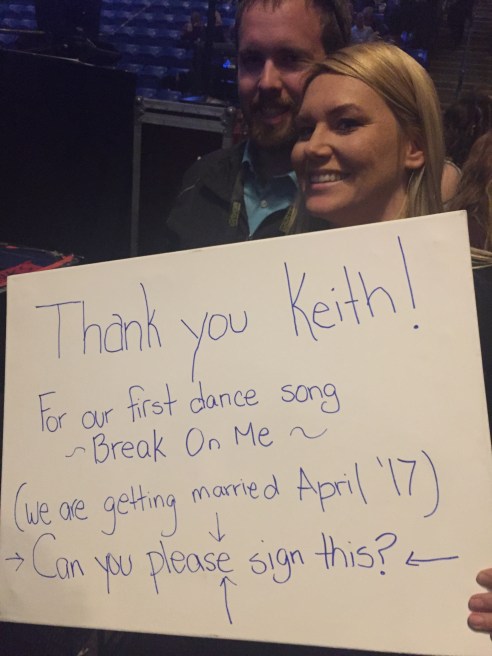 Thank you Keith!
For our first dance song
~ Break On Me ~
(we are getting married April '17)
→ Can you please sign this? ←